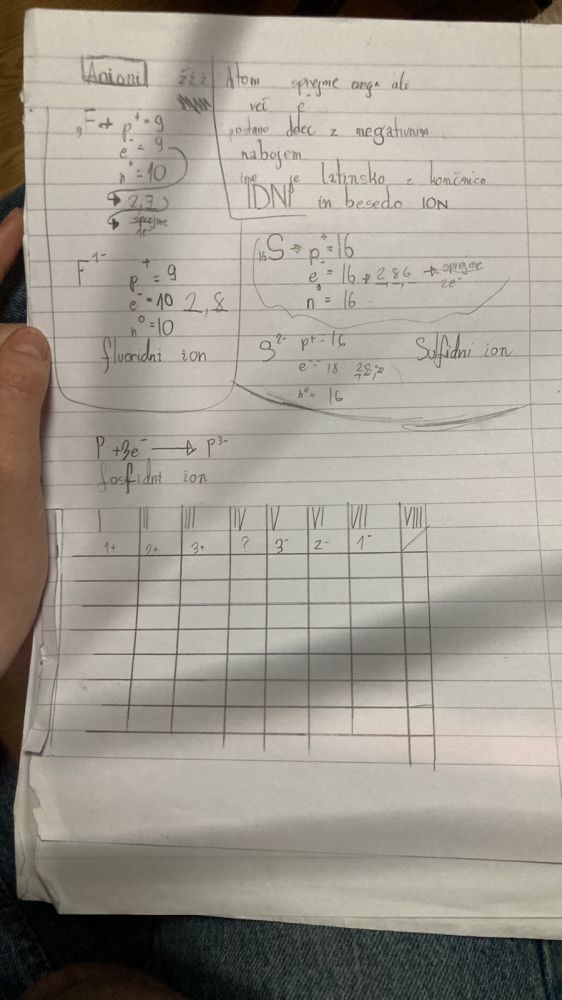 Anioni žžž
Atom sprejme enga ali
več e⁻
postane delec z negativnim
nabojem
ime je latinsko z končnico
IDNI in besedo ION
₉F → p⁺ = 9
e⁻ = 9
n⁰ = 10
→ 2,7
→ sprejme
1e⁻
F¹⁻
p⁺ = 9
e⁻ = 10 2,8
n⁰ = 10
fluoridni ion
₁₆S → p⁺ = 16
e⁻ = 16 → 2,8,6 → sprejme
2e⁻
n⁰ = 16
S²⁻ p⁺ = 16 Sulfidni ion
e⁻ = 18
n⁰ = 16
P + 3e⁻ → P³⁻
fosfidni ion
I II III IV V VI VII VIII
1+ 2+ 3+ ? 3⁻ 2⁻ 1⁻ /